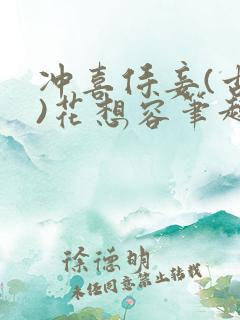 冲喜侍妾(古
)花想容笔趣
徐德明
未经同意禁止转载